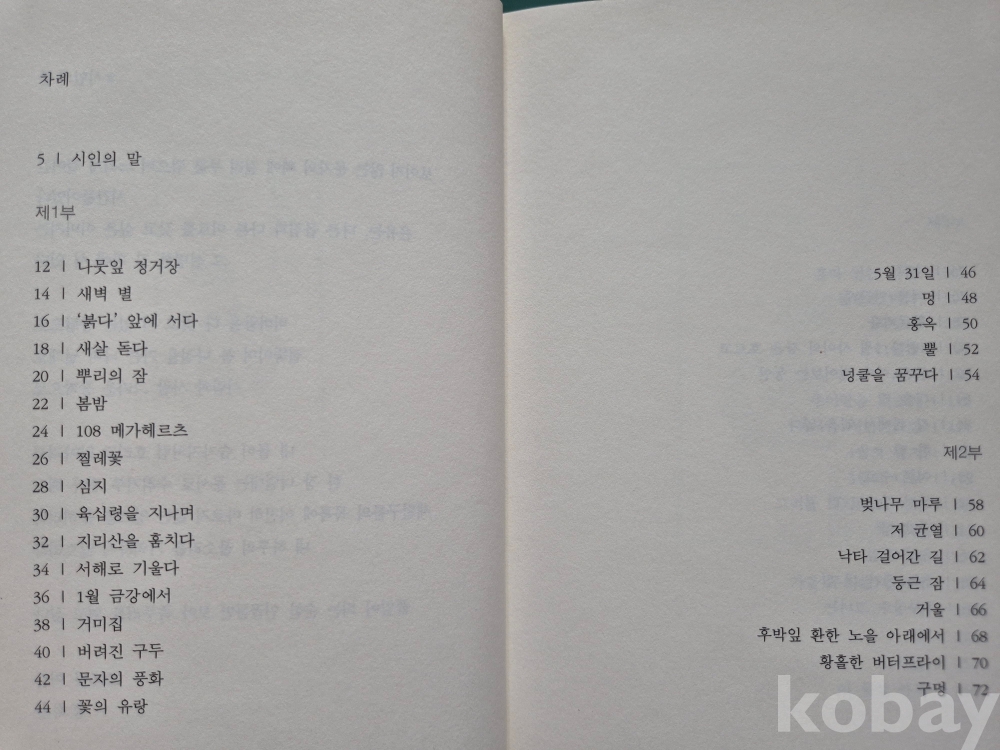 차례
5 | 시인의 말
제1부
12 | 나뭇잎 정거장
14 | 새벽 별
16 | ‘붉다’ 앞에 서다
18 | 새살 돋다
20 | 뿌리의 잠
22 | 봄밤
24 | 108 메가헤르츠
26 | 찔레꽃
28 | 심지
30 | 육십령을 지나며
32 | 지리산을 훔치다
34 | 서해로 기울다
36 | 1월 금강에서
38 | 거미집
40 | 버려진 구두
42 | 문자의 풍화
44 | 꽃의 유랑
5월 31일 | 46
멍 | 48
홍옥 | 50
뿔 | 52
넝쿨을 꿈꾸다 | 54
제2부
벚나무 마루 | 58
저 균열 | 60
낙타 걸어간 길 | 62
둥근 잠 | 64
거울 | 66
후박잎 환한 노을 아래에서 | 68
황홀한 버터프라이 | 70
구멍 | 72
kobay